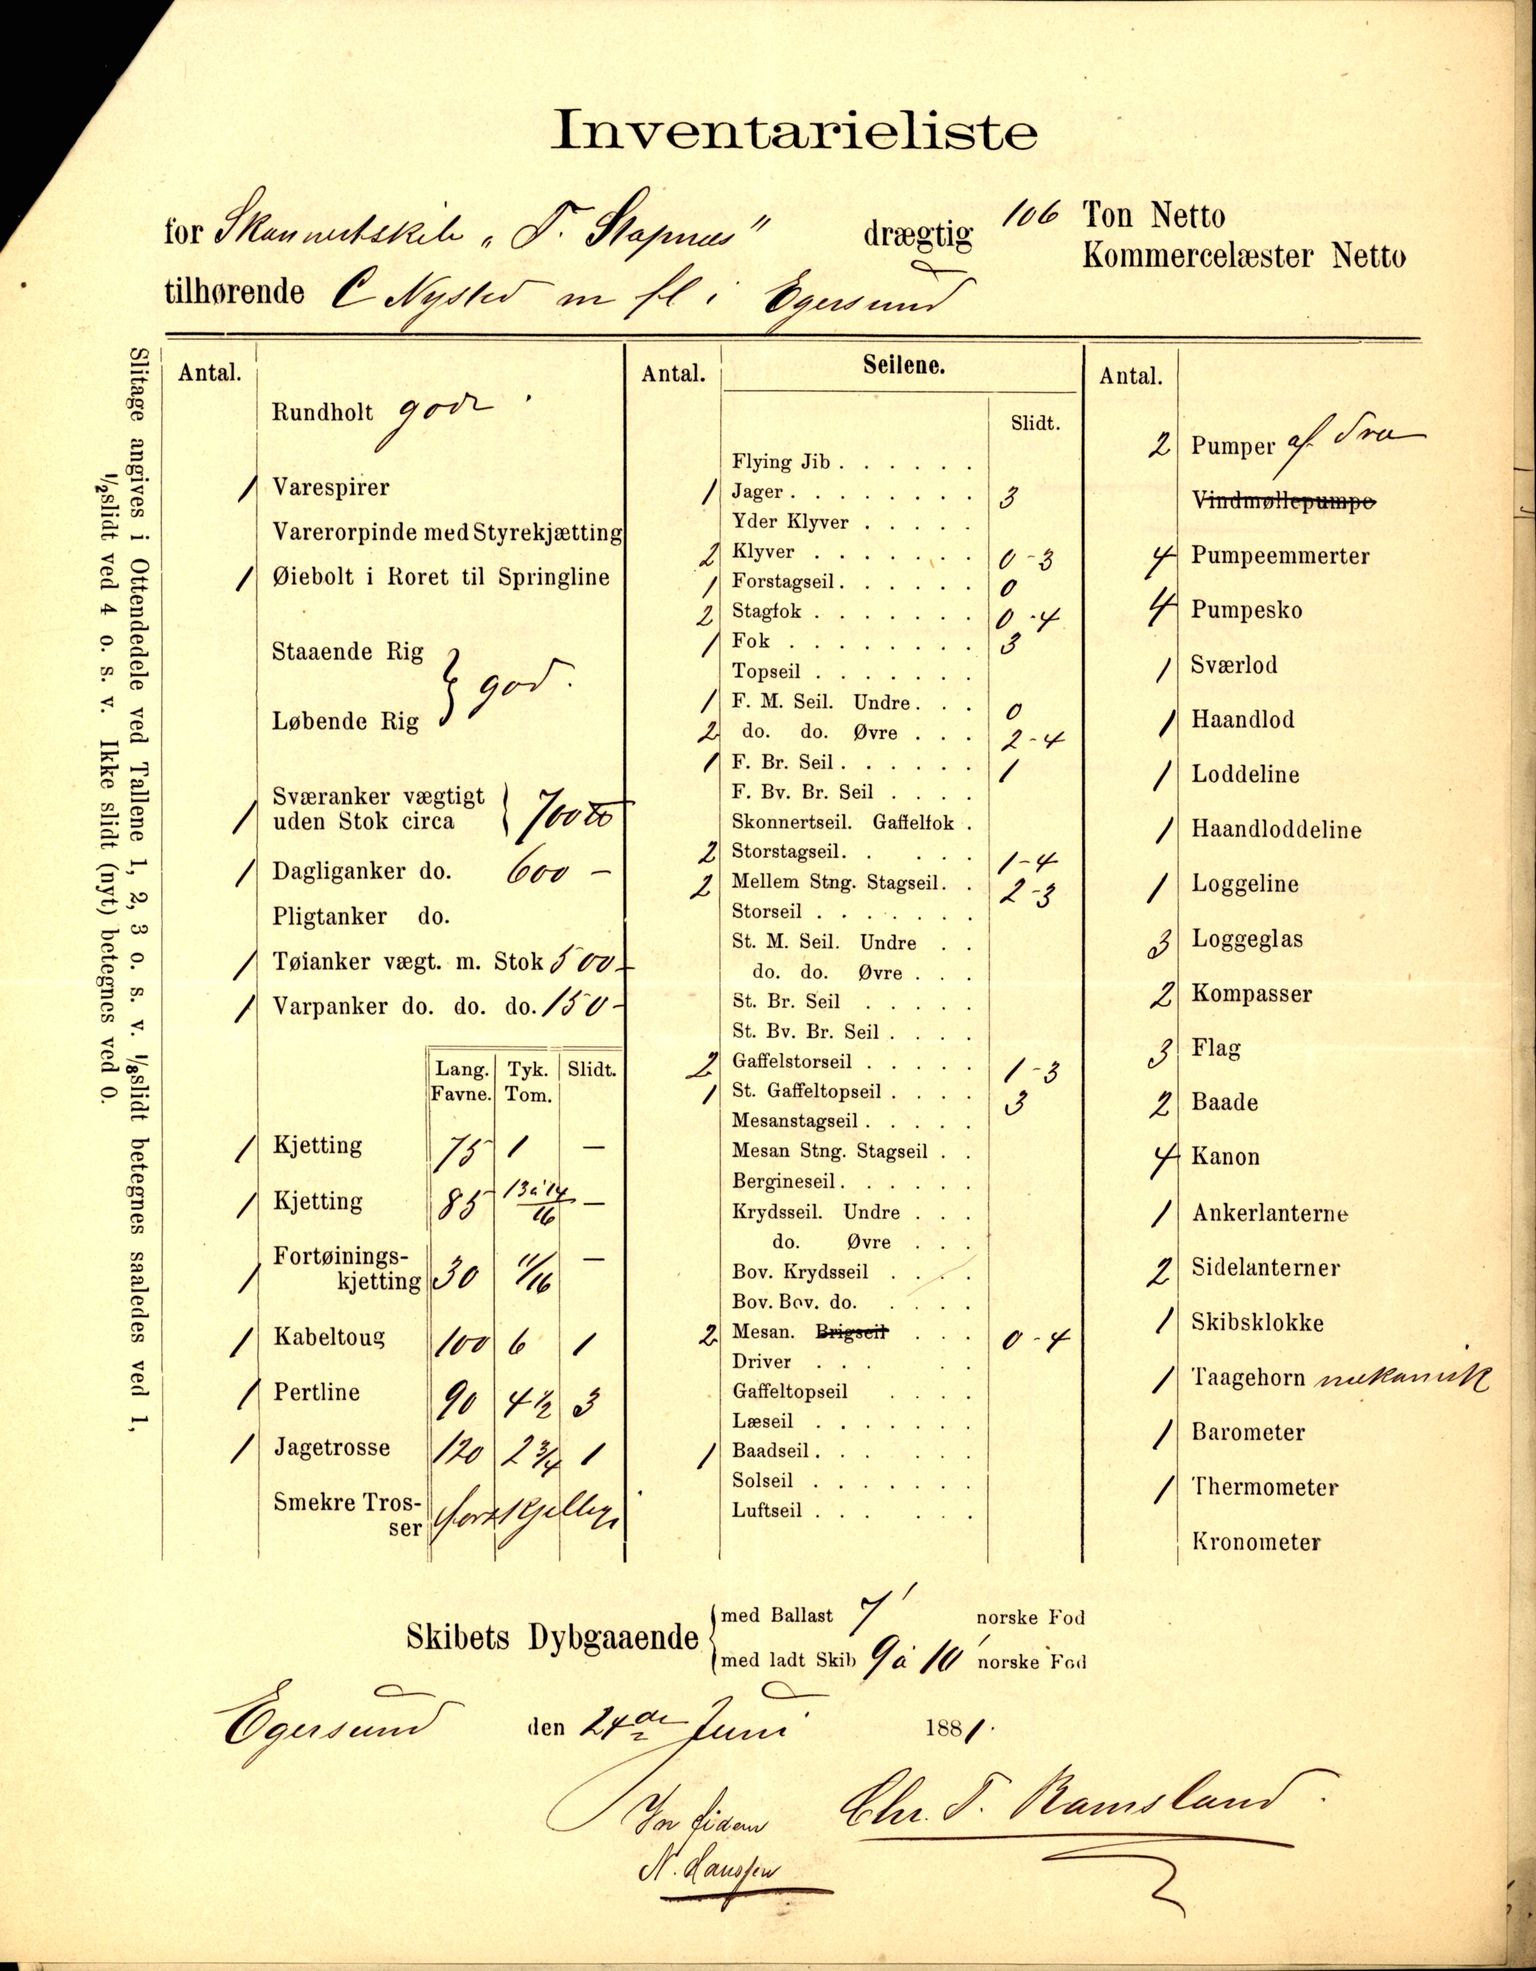 Inventarieliste
for Skonnertskib „T. Stapnæs” drægtig 106 Ton Netto
Kommercelæster Netto
tilhørende C Nysted m fl i Egersund
Slitage angives i Ottendedele ved Tallene 1, 2, 3 o. s. v. ⅛slidt betegnes saaledes ved 1,
½slidt ved 4 o. s. v. Ikke slidt (nyt) betegnes ved 0.
Antal.
Rundholt god
1 Varespirer
Varerorpinde med Styrekjætting
1 Øiebolt i Roret til Springline
Staaende Rig
Løbende Rig } god.
1 Sværanker vægtigt
uden Stok circa } 700 ℔
1 Dagliganker do. 600 –
Pligtanker do.
1 Tøianker vægt. m. Stok 500 –
1 Varpanker do. do. do. 150 –
Lang. Tyk. Slidt.
Favne. Tom.
1 Kjetting 75 1 —
1 Kjetting 85 13 à 14/16 —
Fortøinings-
1 kjetting 30 11/16 —
1 Kabeltoug 100 6 1
1 Pertline 90 4½ 3
1 Jagetrosse 120 2¾ 1
Smekre Tros-
ser forskjellige
Antal. Seilene.
Slidt.
Flying Jib . . . . . .
1 Jager . . . . . . . . 3
Yder Klyver . . . . .
2 Klyver . . . . . . . 0 - 3
1 Forstagseil . . . . . . 0
2 Stagfok . . . . . . . 0 - 4
1 Fok . . . . . . . . 3
Topseil . . . . . . .
1 F. M. Seil. Undre . . . 0
2 do. do. Øvre . . . 2 - 4
1 F. Br. Seil . . . . . . 1
F. Bv. Br. Seil . . . .
Skonnertseil. Gaffelfok .
2 Storstagseil. . . . . 1 - 4
2 Mellem Stng. Stagseil . . 2 - 3
Storseil . . . . . . .
St. M. Seil. Undre . .
do. do. Øvre . . .
St. Br. Seil . . . . .
St. Bv. Br. Seil . . . .
2 Gaffelstorseil . . . . . 1 - 3
1 St. Gaffeltopseil . . . . 3
Mesanstagseil . . . . .
Mesan Stng. Stagseil . .
Bergineseil . . . . . .
Krydsseil. Undre . . .
do. Øvre . . .
Bov. Krydsseil . . . .
Bov. Bov. do. . . . .
2 Mesan. Brigseil . . . 0 - 4
Driver . . . . .
Gaffeltopseil . . . .
Læseil . . . . . . .
1 Baadseil . . . . . .
Solseil . . . . . . .
Luftseil . . . . . .
Antal.
2 Pumper af Træ
Vindmøllepumpe
4 Pumpeemmerter
4 Pumpesko
1 Sværlod
1 Haandlod
1 Loddeline
1 Haandloddeline
1 Loggeline
3 Loggeglas
2 Kompasser
3 Flag
2 Baade
4 Kanon
1 Ankerlanterne
2 Sidelanterner
1 Skibsklokke
1 Taagehorn mekanisk
1 Barometer
1 Thermometer
Kronometer
Skibets Dybgaaende { med Ballast 7' norske Fod
med ladt Skib 9 à 10' norske Fod
Egersund den 24de Juni 1881.
In fidem Chr. T. Ramsland.
N. Hanssen